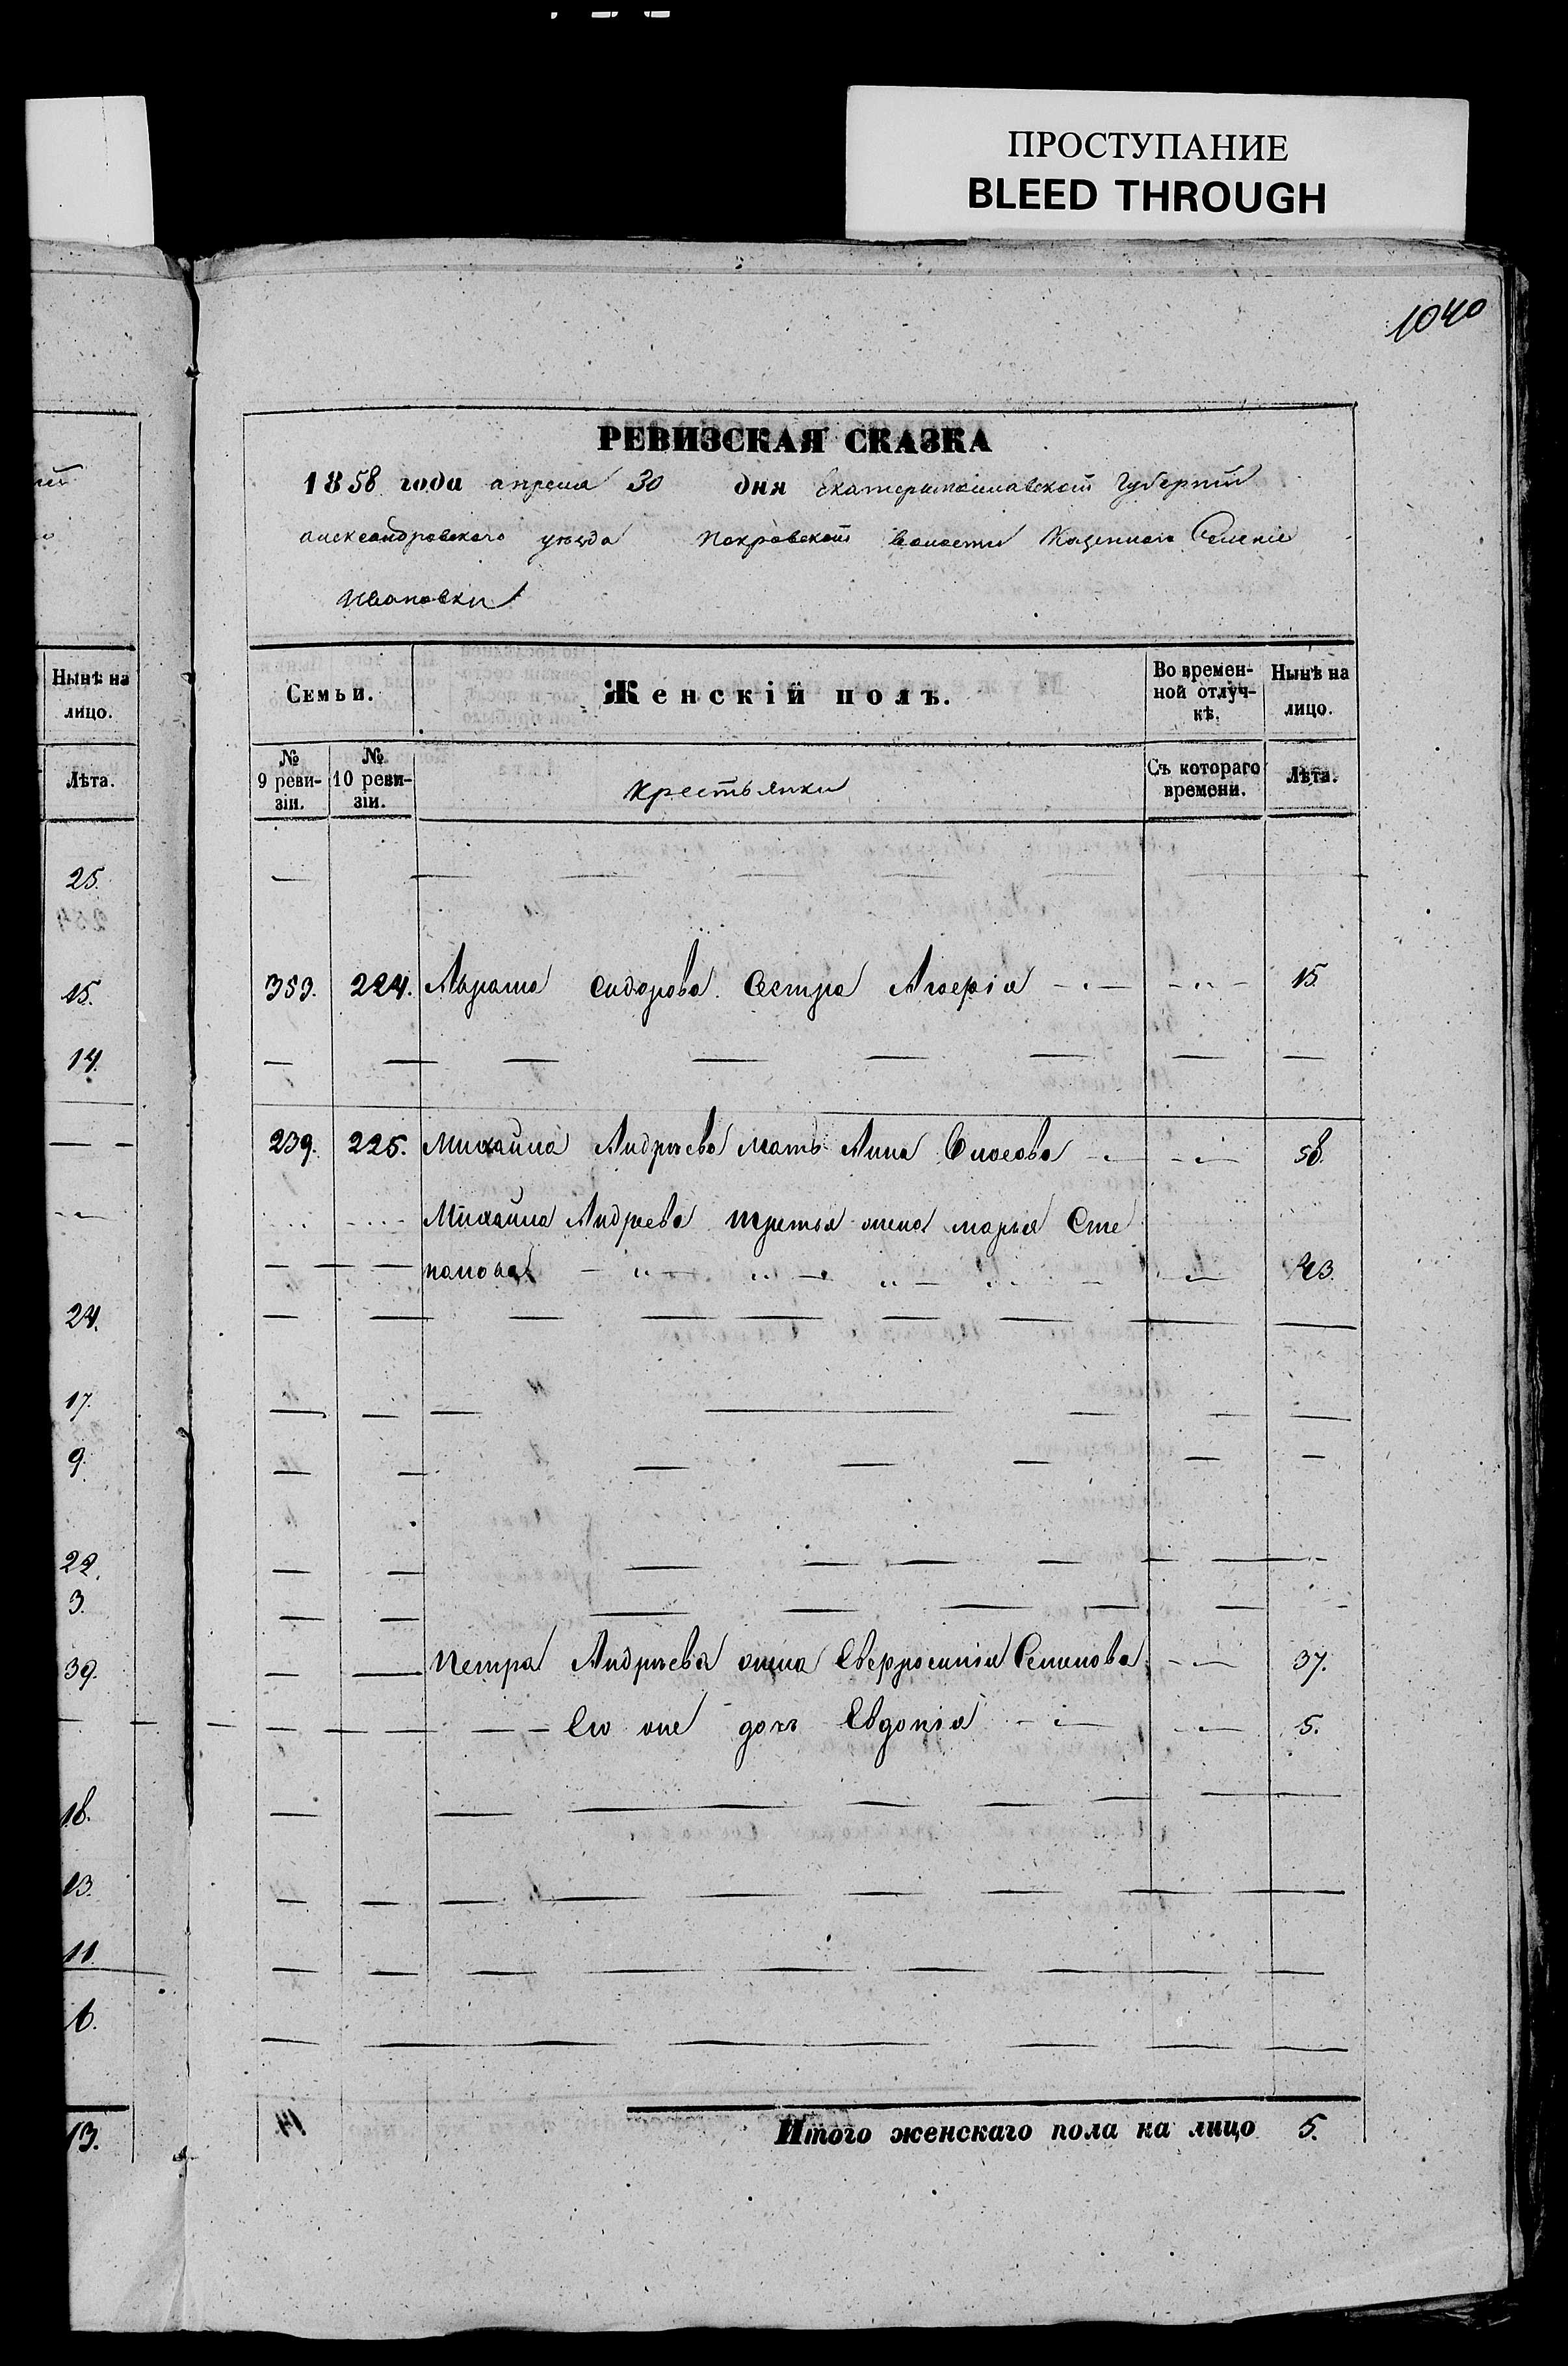 ПРОСТУПАНИЕ
BLEED THROUGH
1040
РЕВИЗСКАЯ СКАЗКА
1858 года апреля 30 дня Екатеринославской Губернии
александровского уезда Покровской волости Казенного Селение
Ивановки
Нынѣ на лицо.
Лѣта.
25.
15.
14.
24.
17.
9.
22.
3.
39.
18.
13.
11.
6.
13.
Семьи.
Женскій полъ.
Во времен-
ной отлуч-
кѣ.
Нынѣ на
лицо.
№
9 реви-
зіи.
№
10 реви-
зіи.
крестьянки
Съ котораго
времени.
Лѣта.
353. 224. Сидорова Сестра 15.
239. 225. Михайла Андрѣева мать Анна 58.
Михайла Андреева третья жена марья Сте
панова 23.
Петра Андрѣева жена Семенова 37.
Ею же дочь Евдокія 5.
Итого женскаго пола на лицо 5.